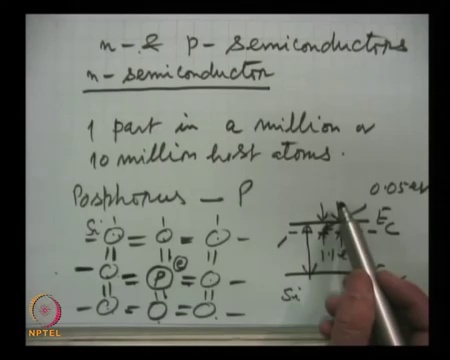 n- & p- semiconductors
n- semiconductor
1 part in a million or
10 million host atoms.
Posphorus — P
0.05 eV
Si
E_C
1.1
P
e
Si
NPTEL